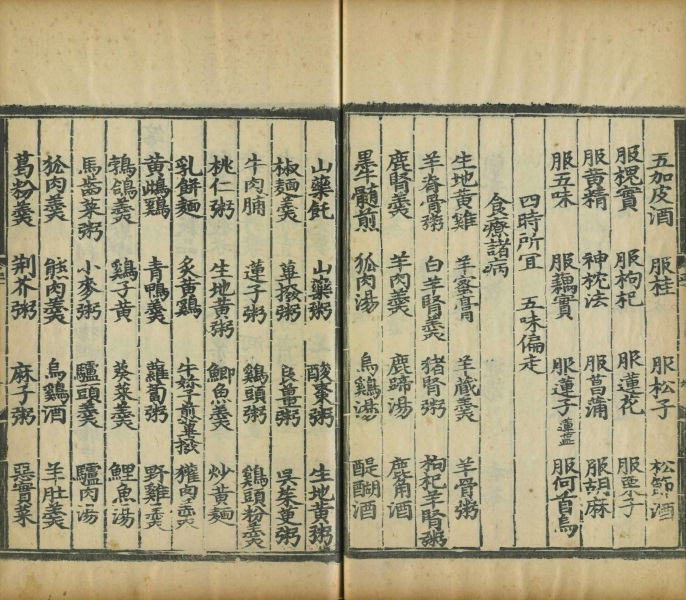 五加皮酒 服桂 服松子 松節酒
服槐實 服枸杞 服蓮花 服栗子
服黃精 神枕法 服菖蒲 服胡麻
服五味 服藕實 服蓮子 蓮蘂 服何首烏
四時所宜 五味偏走
食療諸病
生地黃雞 羊蜜膏 羊藏羹 羊骨粥
羊脊骨粥 白羊腎羹 豬腎粥 枸杞羊腎粥
鹿腎羹 羊肉羹 鹿蹄湯 鹿角酒
黑牛髓煎 狐肉湯 烏鷄湯 醍醐酒
山藥飥 山藥粥 酸棗粥 生地黃粥
椒麵羹 蓽撥粥 良薑粥 吳茱萸粥
牛肉脯 蓮子粥 鷄頭粥 鷄頭粉羹
桃仁粥 生地黃粥 鯽魚羹 炒黃麵
乳餅麵 炙黃鷄 牛妳子煎蓽撥 獾肉羹
黃雌鷄 青鴨羹 蘿蔔粥 野雞羹
鵓鴿羹 鷄子黃 葵菜羹 鯉魚湯
馬齒菜粥 小麥粥 驢頭羹 驢肉湯
狐肉羹 熊肉羹 烏鷄酒 羊肚羹
葛粉羹 荆芥粥 麻子粥 惡實菜